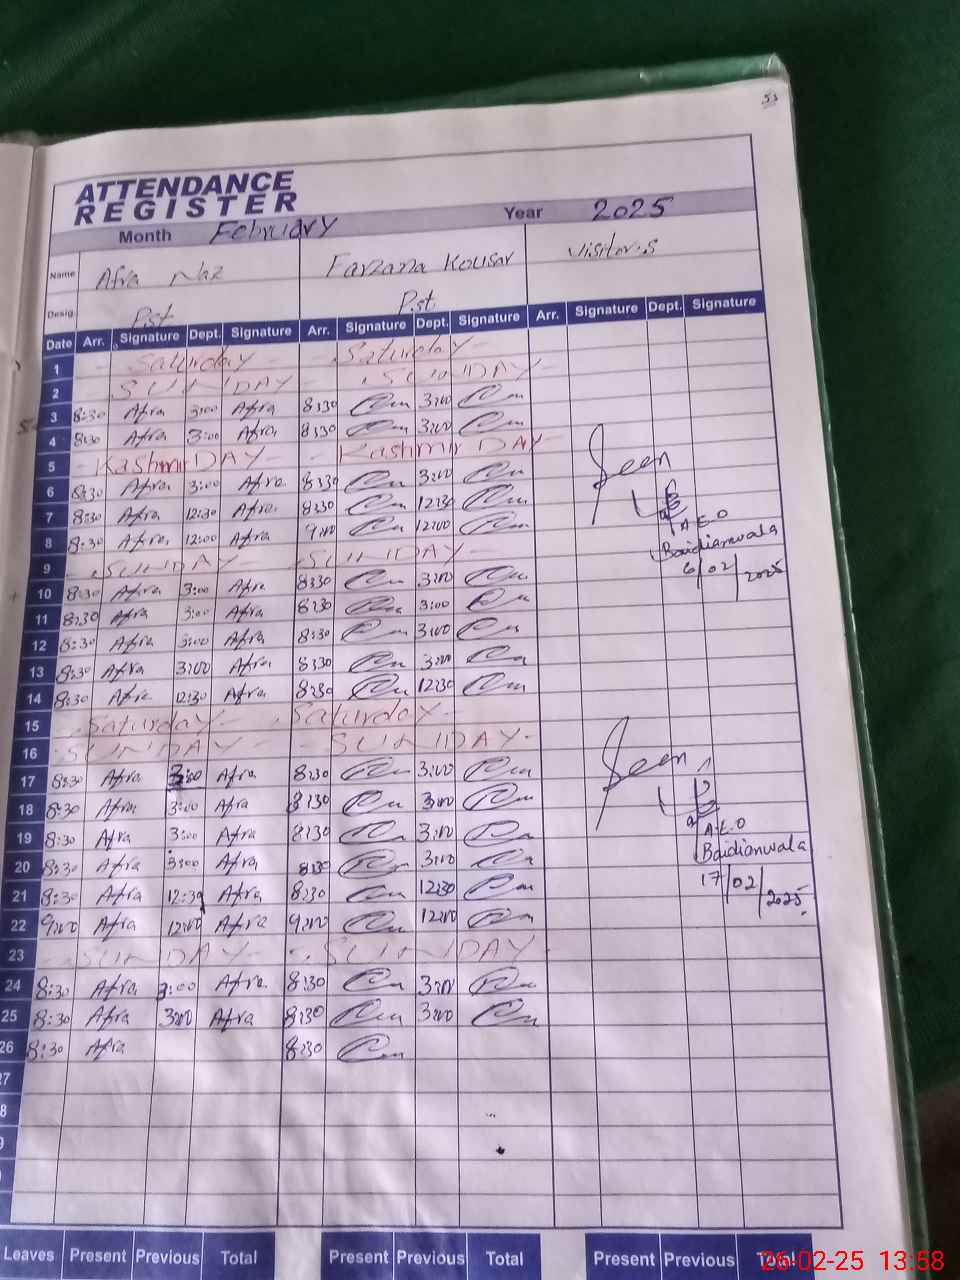 53
ATTENDANCE
REGISTER
Month February Year 2025
Name Afra Naz Farzana Kousar Visitor.s
Desig. P.st P.st.
Date Arr. Signature Dept. Signature Arr. Signature Dept. Signature Arr. Signature Dept. Signature
1 Saturday Saturday
2 SUNDAY SUNDAY
3 8:30 Afra 3:00 Afra 8:30 3:00
4 8:30 Afra 3:00 Afra 8:30 3:00
5 Kashmir DAY Kashmir DAY
6 8:30 Afra 3:00 Afra 8:30 3:00
7 8:30 Afra 12:30 Afra 8:30 12:30
8 8:30 Afra 12:00 Afra 9:00 12:00
9 SUNDAY SUNDAY
10 8:30 Afra 3:00 Afra 8:30 3:00
11 8:30 Afra 3:00 Afra 8:30 3:00
12 8:30 Afra 3:00 Afra 8:30 3:00
13 8:30 Afra 3:00 Afra 8:30 3:00
14 8:30 Afra 12:30 Afra 8:30 12:30
15 Saturday Saturday
16 SUNDAY SUNDAY
17 8:30 Afra 3:00 Afra 8:30 3:00
18 8:30 Afra 3:00 Afra 8:30 3:00
19 8:30 Afra 3:00 Afra 8:30 3:00
20 8:30 Afra 3:00 Afra 8:30 3:00
21 8:30 Afra 12:30 Afra 8:30 12:30
22 9:00 Afra 12:00 Afra 9:00 12:00
23 SUNDAY SUNDAY
24 8:30 Afra 3:00 Afra 8:30 3:00
25 8:30 Afra 3:00 Afra 8:30 3:00
26 8:30 Afra 8:30
Seen
A.E.O
Baidianwala
6/02/2025
Seen
A.E.O
Baidianwala
17/02/2025.
Leaves Present Previous Total Present Previous Total Present Previous Total
26-02-25 13:58